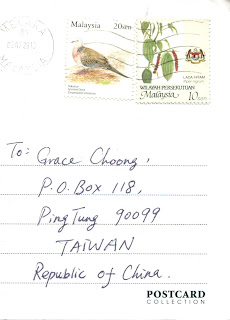 Malaysia 20sen
LADA HITAM
WILAYAH PERSEKUTUAN
Malaysia 10sen
To: Grace Choong,
P.O. Box 118,
PingTung 90099
TAIWAN
Republic of China.
POSTCARD
COLLECTION